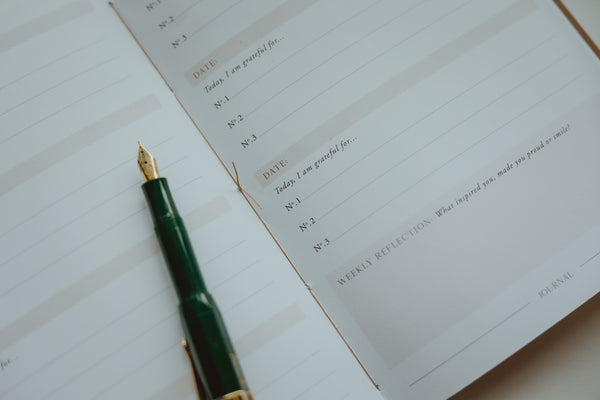 for...
Nº.1
Nº.2
Nº.3
DATE:
Today, I am grateful for...
Nº.1
Nº.2
Nº.3
DATE:
Today, I am grateful for...
Nº.1
Nº.2
Nº.3
WEEKLY REFLECTION: What inspired you, made you proud or smile?
JOURNAL